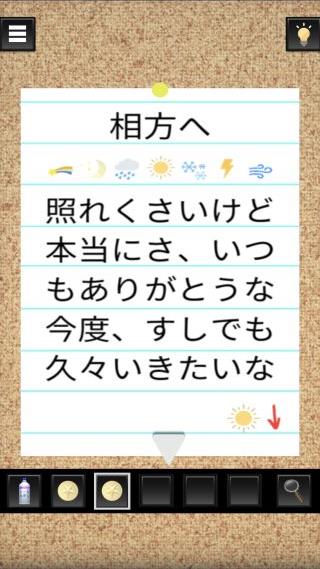 相方へ
照れくさいけど
本当にさ、いつ
もありがとうな
今度、すしでも
久々いきたいな